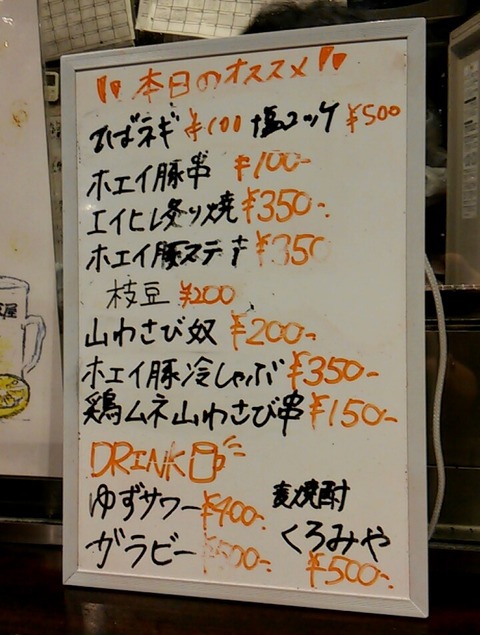 本日のオススメ
ひばネギ ¥100 塩ユッケ ¥500
ホエイ豚串 ¥100-
エイヒレ炙り焼 ¥350-
ホエイ豚ステキ ¥350
枝豆 ¥200
山わさび奴 ¥200-
ホエイ豚冷しゃぶ ¥350-
鶏ムネ山わさび串 ¥150-
DRINK
ゆずサワー ¥400-
ガラビー ¥500-
麦焼酎
くろみや
¥500-
屋